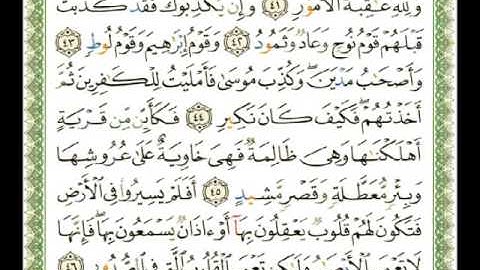 وَلِلَّهِ عَـٰقِبَةُ ٱلْأُمُورِ ٤١ وَإِن يُكَذِّبُوكَ فَقَدْ كَذَّبَتْ
قَبْلَهُمْ قَوْمُ نُوحٍ وَعَادٌ وَثَمُودُ ٤٢ وَقَوْمُ إِبْرَٰهِيمَ وَقَوْمُ لُوطٍ ٤٣
وَأَصْحَـٰبُ مَدْيَنَ ۖ وَكُذِّبَ مُوسَىٰ فَأَمْلَيْتُ لِلْكَـٰفِرِينَ ثُمَّ
أَخَذْتُهُمْ ۖ فَكَيْفَ كَانَ نَكِيرِ ٤٤ فَكَأَيِّن مِّن قَرْيَةٍ
أَهْلَكْنَـٰهَا وَهِىَ ظَالِمَةٌ فَهِىَ خَاوِيَةٌ عَلَىٰ عُرُوشِهَا
وَبِئْرٍ مُّعَطَّلَةٍ وَقَصْرٍ مَّشِيدٍ ٤٥ أَفَلَمْ يَسِيرُوا۟ فِى ٱلْأَرْضِ
فَتَكُونَ لَهُمْ قُلُوبٌ يَعْقِلُونَ بِهَآ أَوْ ءَاذَانٌ يَسْمَعُونَ بِهَا ۖ فَإِنَّهَا
لَا تَعْمَى ٱلْأَبْصَـٰرُ وَلَـٰكِن تَعْمَى ٱلْقُلُوبُ ٱلَّتِى فِى ٱلصُّدُورِ ٤٦